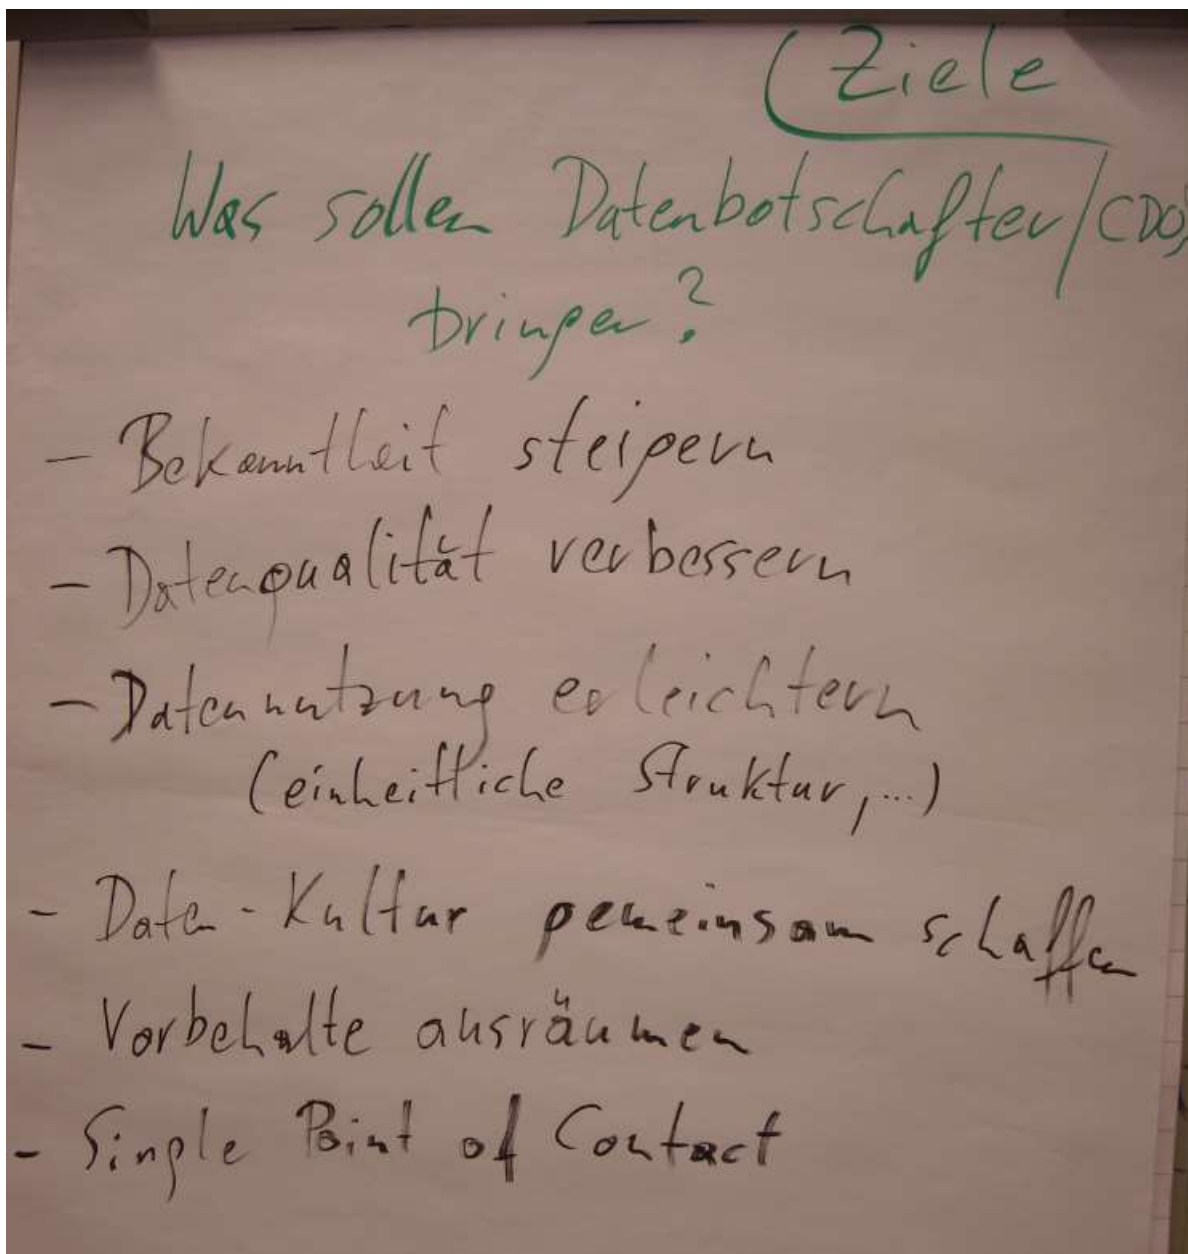 Ziele
Was sollen Datenbotschafter/CDOs
bringen?
- Bekanntheit steigern
- Datenqualität verbessern
- Datennutzung erleichtern
(einheitliche Struktur,...)
- Daten-Kultur gemeinsam schaffen
- Vorbehalte ausräumen
- Single Point of Contact